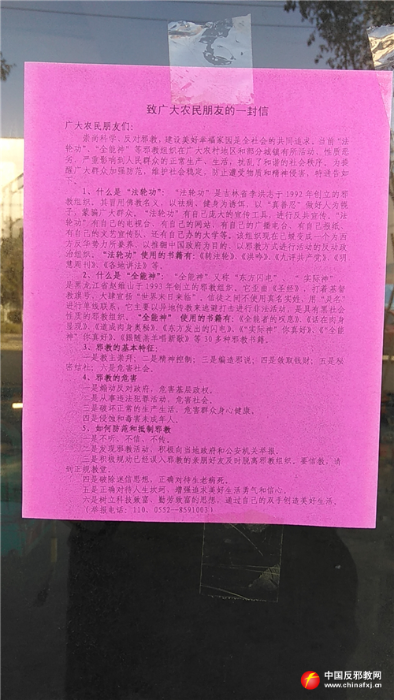 致广大农民朋友的一封信
广大农民朋友们：
崇尚科学、反对邪教，建设美好幸福家园是全社会的共同追求。当前“法
轮功”、“全能神”等邪教组织在广大农村地区和部分城镇有所活动，性质恶
劣，严重影响到人民群众的正常生产、生活，扰乱了和谐的社会秩序。为提
醒广大群众加强防范，维护社会稳定，防止遭受物质和精神侵害，特函告如
1、什么是“法轮功”：“法轮功”是吉林省李洪志于1992年创立的邪
教组织。其冒用佛教名义，以祛病、健身为诱饵，以“真善忍”做好人为幌
子，蒙骗广大群众。“法轮功”有自己庞大的宣传工具，进行反共宣传。“法
轮功”有自己的电视台，有自己的网站，有自己的广播电台，有自己报纸，
有自己的文艺宣传队，还有自己办的大学等。该组织现在已蜕变成一个为西
方反华势力所豢养，以推翻中国政府为目的，以邪教方式进行活动的反动政
治组织。“法轮功”使用的书籍有：《转法轮》《洪吟》《九评共产党》《明
慧周刊》《各地讲法》等。
2、什么是“全能神”：“全能神”又称“东方闪电”、“实际神”，
是黑龙江省赵维山于1993年创立的邪教组织。它歪曲《圣经》，打着基督
教旗号，大肆宣扬“世界末日来临”，信徒之间不使用真名实姓，用“灵名”
进行单线联系，它主要以异地传教来逃避打击进行非法活动，是具有黑社会
性质的邪教组织。“全能神”使用的书籍有：《全能者的叹息》《话在肉身
显现》《道成肉身奥秘》《东方发出的闪电》《“实际神”你真好》《“全能
神”你真好》《跟随羔羊唱新歌》等30多种邪教书籍。
3、邪教的基本特征：
一是教主崇拜；二是精神控制；三是编造邪说；四是敛取钱财；五是秘
密结社；六是危害社会。
4、邪教的危害
一是煽动反对政府，危害基层政权。
二是从事违法犯罪活动，危害社会。
三是破坏正常的生产生活，危害群众身心健康。
四是侵蚀和毒害未成年人。
5、如何防范和抵制邪教
一是不听、不信、不传。
二是发现邪教活动，积极向当地政府和公安机关举报。
三是积极规劝已经误入邪教的亲朋好友及时脱离邪教组织。要信教，请
到正规教堂。
四是破除迷信思想，正确对待生老病死。
五是正确对待人生坎坷，增强追求美好生活勇气和信心。
六是树立科技致富、勤劳致富的思想，通过自己的双手创造美好生活。
（举报电话：110、0552—8591003）
中国反邪教网
www.chinafxj.cn